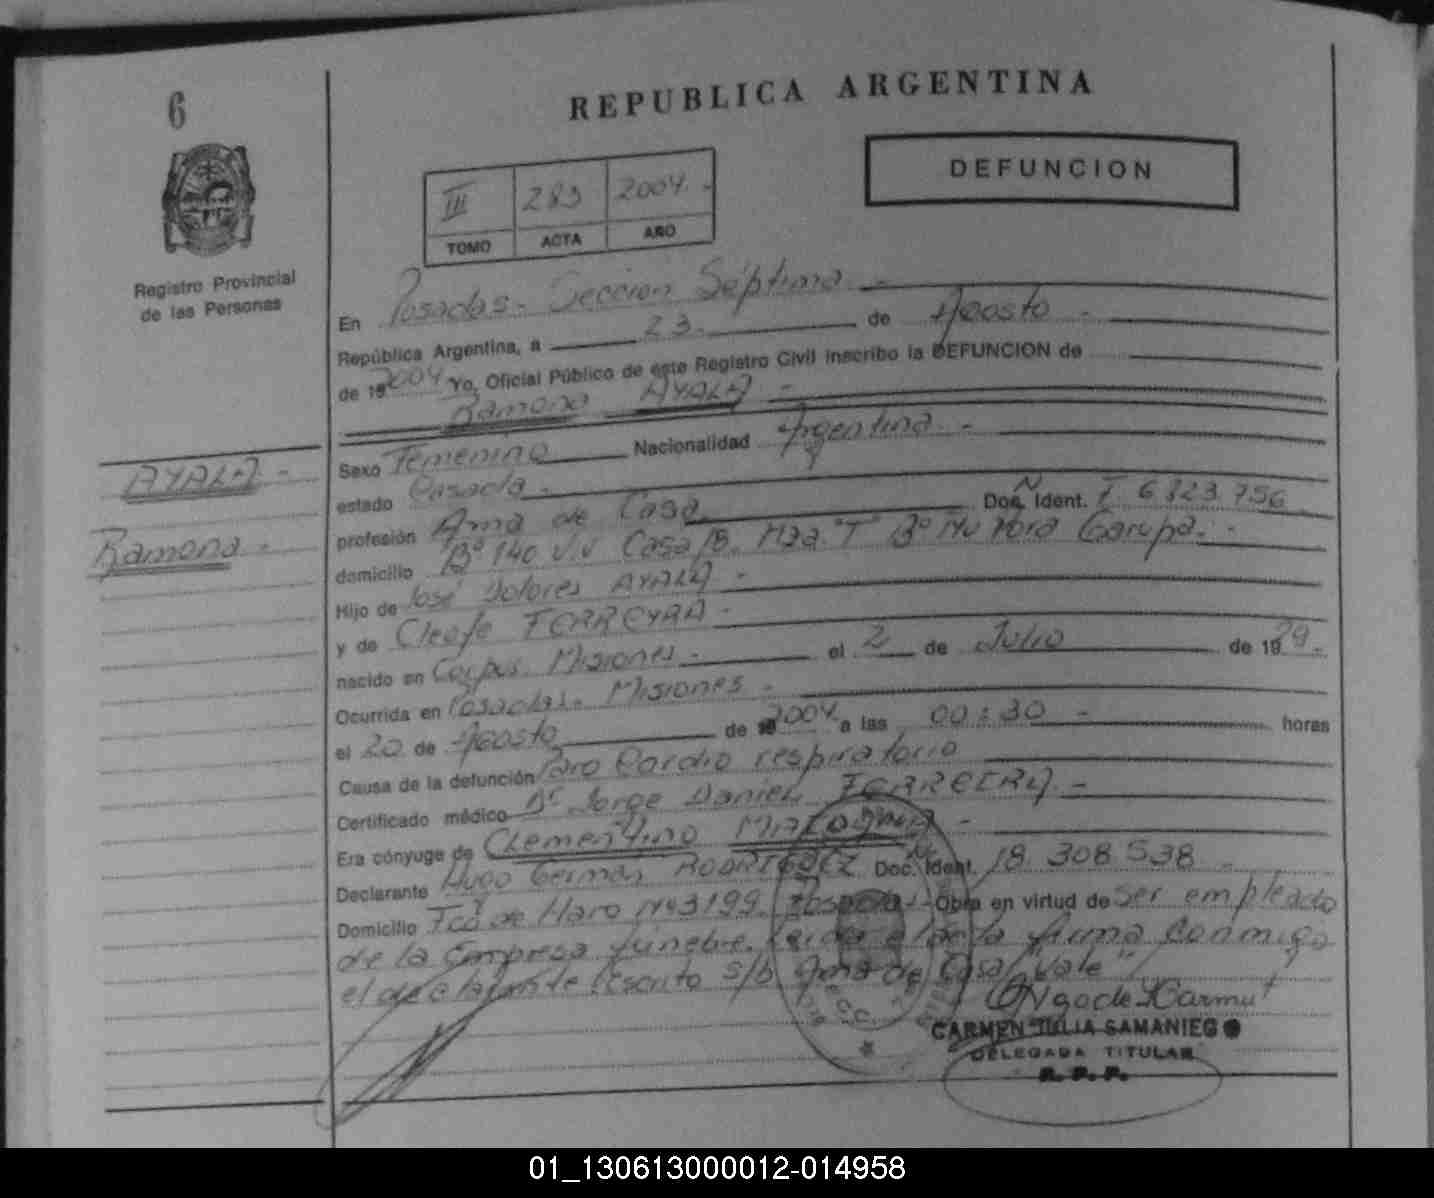 6
REPUBLICA ARGENTINA
DEFUNCION
III 283 2004.-
TOMO ACTA AÑO
Registro Provincial
de las Personas
En Posadas - Sección Séptima -
República Argentina, a 23. de Agosto -
de 19 2004 Yo, Oficial Público de este Registro Civil inscribo la DEFUNCION de
Ramona AYALA -
AYALA -
Ramona -
Sexo Femenino Nacionalidad Argentina -
estado Casada -
profesión Ama de Casa Doc. Ident. F 6 323 756
domicilio Bº 140 V.V Casa 18. Mza "T" Bº Ñu Porá Garupá. -
Hijo de José Dolores AYALA -
y de Cleofe FERREYRA -
nacido en Corpus. Misiones - el 2 de Julio de 19 29.
Ocurrida en Posadas. Misiones -
el 20 de Agosto de 2004 a las 00:30 - horas
Causa de la defunción Paro Cardio respiratorio
Certificado médico Dr Jorge Daniel FERREIRA -
Era cónyuge de Clementino -
Declarante Hugo Germán RODRIGUEZ Doc. Ident. 18 308 538
Domicilio Fco de Haro Nº 3199. Posadas - Obra en virtud de Ser empleado
de la Empresa fúnebre. Leída el acta firma Conmigo
el declarante. Escrito s/b "Ama de Casa" Vale"
CARMEN JULIA SAMANIEGO
DELEGADA TITULAR
R. P. P.
01_130613000012-014958